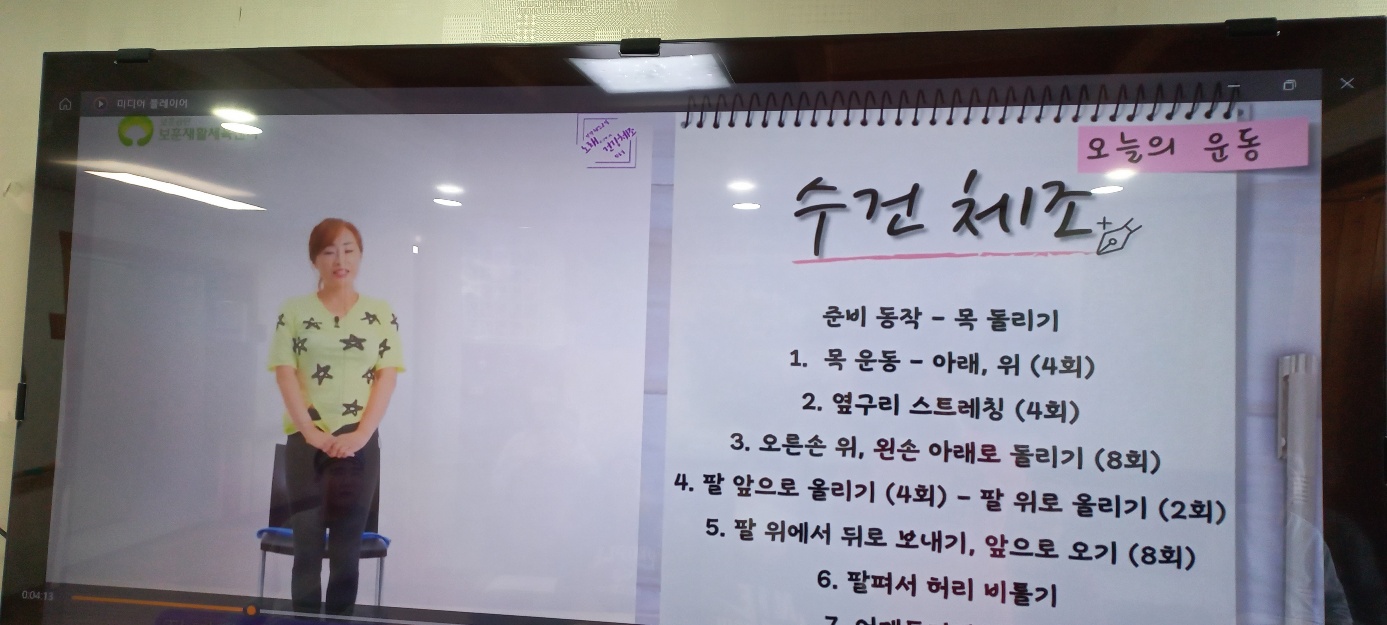 미디어 플레이어
오늘의 운동
수건 체조
준비 동작 - 목 돌리기
1. 목 운동 - 아래, 위 (4회)
2. 옆구리 스트레칭 (4회)
3. 오른손 위, 왼손 아래로 돌리기 (8회)
4. 팔 앞으로 올리기 (4회) - 팔 위로 올리기 (2회)
5. 팔 위에서 뒤로 보내기, 앞으로 오기 (8회)
6. 팔펴서 허리 비틀기
7.
0:04:13